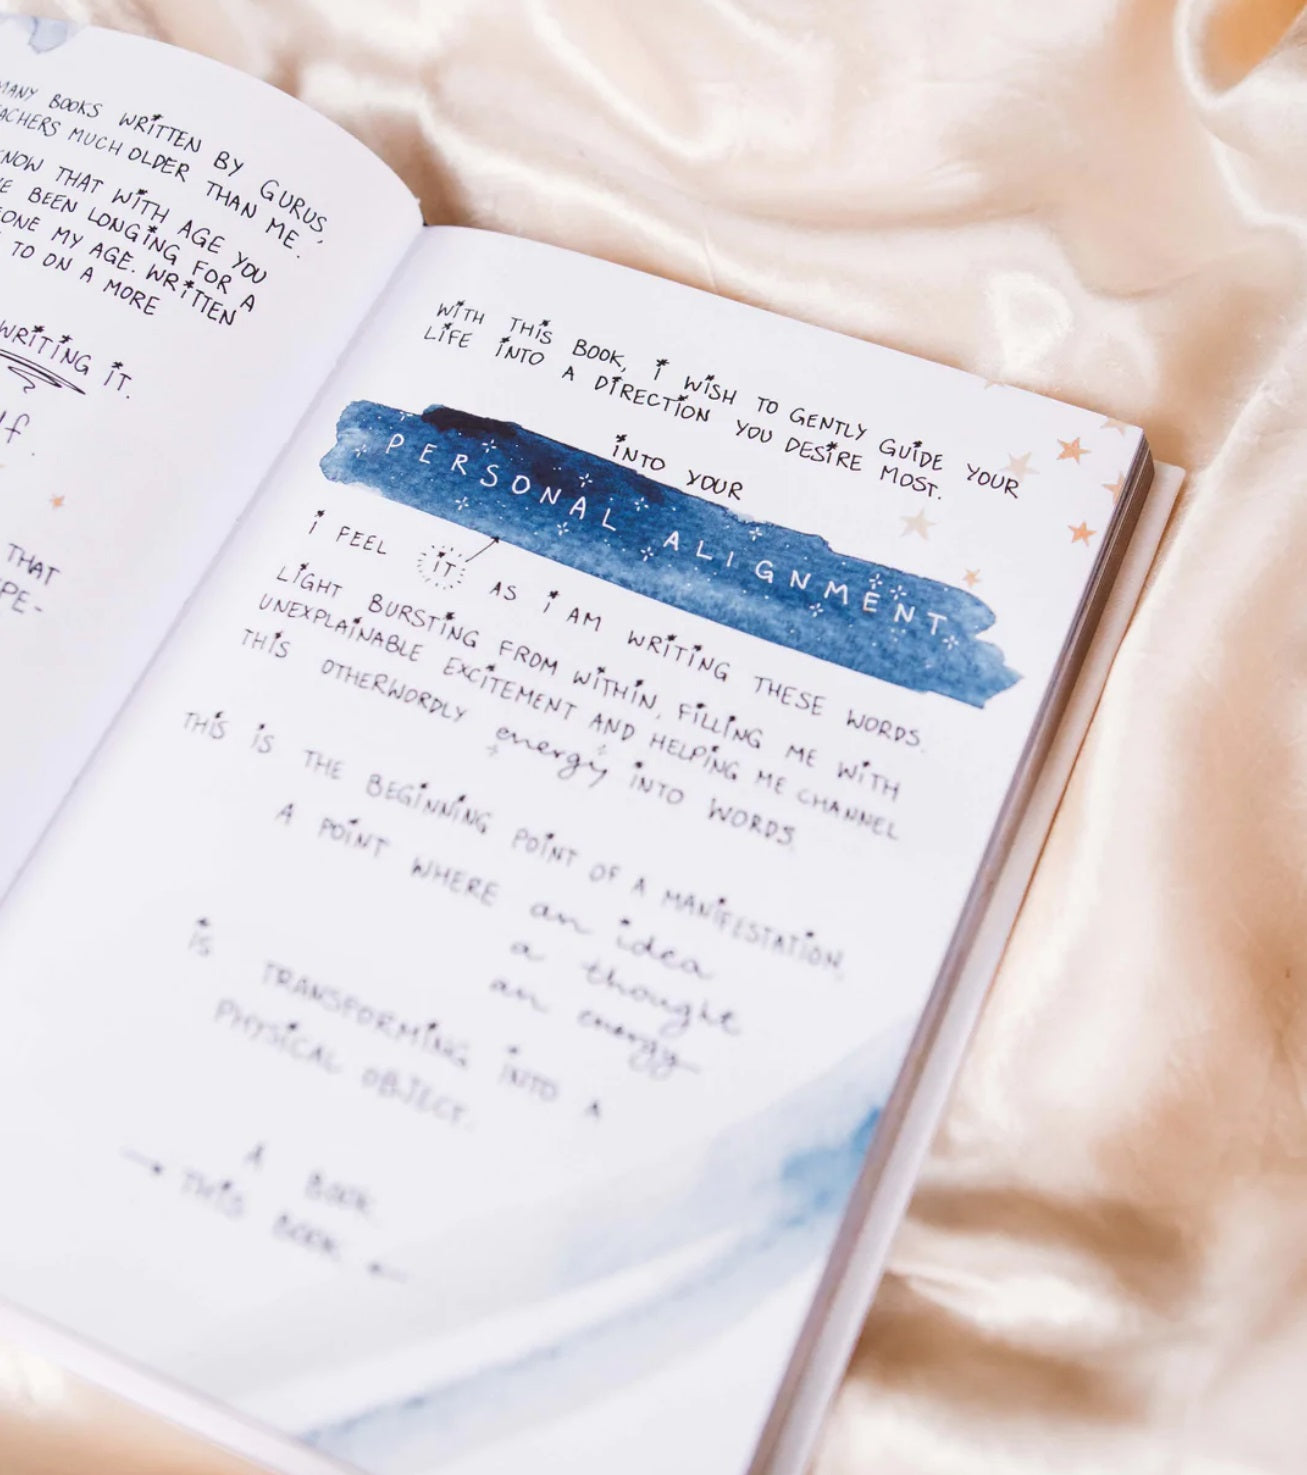 MANY BOOKS WRITTEN BY GURUS,
MUCH OLDER THAN ME.
KNOW THAT WITH AGE YOU
BEEN LONGING FOR A
MY AGE. WRITTEN
TO ON A MORE
WRITING IT.
THAT
WITH THIS BOOK, i WISH TO GENTLY GUIDE YOUR
LIFE INTO A DIRECTION YOU DESIRE MOST.
INTO YOUR
PERSONAL ALIGNMENT
i FEEL iT AS i AM WRITING THESE WORDS.
LIGHT BURSTING FROM WITHIN, FILLING ME WITH
UNEXPLAINABLE EXCITEMENT AND HELPING ME CHANNEL
THIS OTHERWORDLY energy INTO WORDS.
THIS IS THE BEGINNING POINT OF A MANIFESTATION,
A POINT WHERE an idea
a thought
an energy
iS TRANSFORMING INTO A
PHYSICAL OBJECT.
A BOOK.
→ THIS BOOK. ←